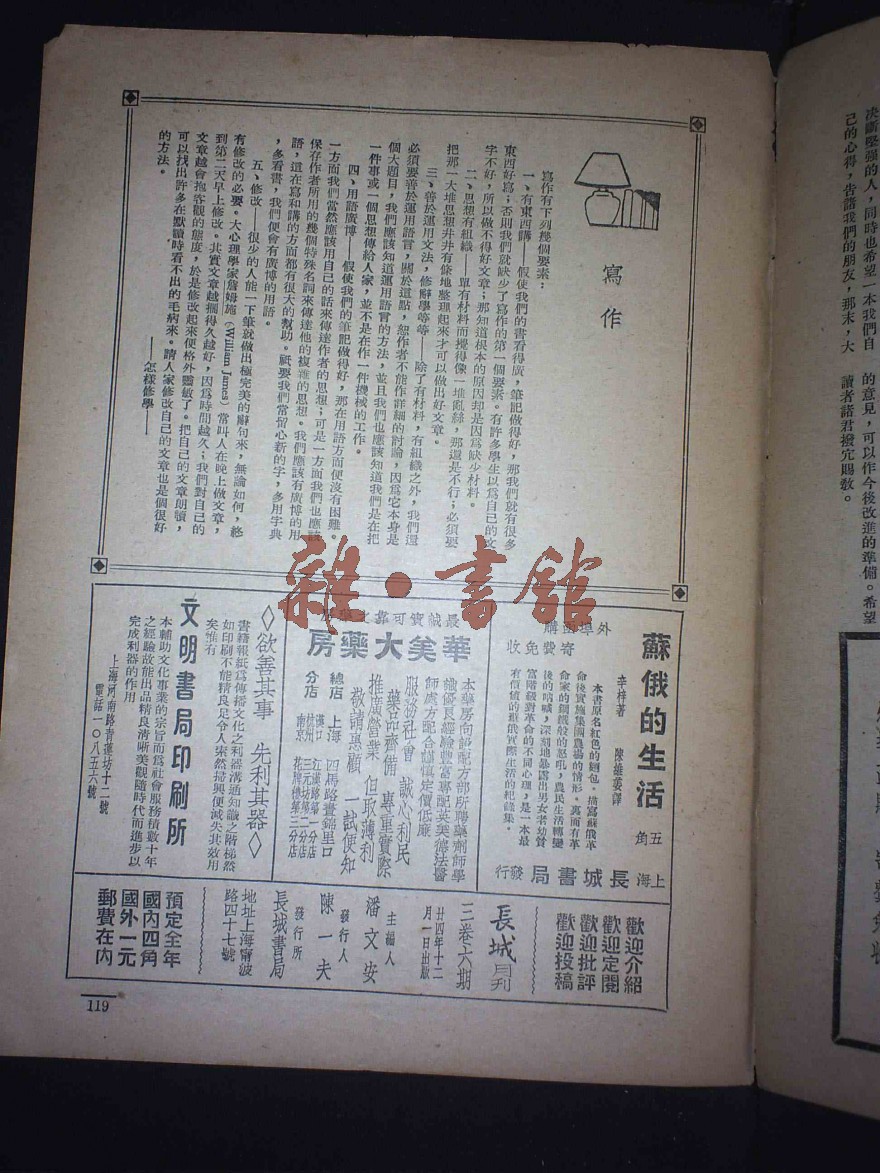 決斷堅强的人，同時也希望一本我們自
己的心得，告諸我們的朋友，那末，大
的意見，可以作今後改進的準備。希望
讀者諸君撥冗賜教。
寫作
寫作有下列幾個要素：
一、有東西講——假使我們的書看得廣，筆記做得好，那我們就有很多
東西好寫；否則我們就缺少了寫作的第一個要素。有許多學生以爲自己的文
字不好，所以做不得好文章；那知道根本的原因却是因爲缺少材料。
二、思想有組織——單有材料而攪得像一堆亂絲，那還是不行；必須要
把那一大堆思想井井有條地整理起來才可以做出好文章。
三、善於運用文法，修辭學等等——除了有材料，有組織之外，我們還
必須要善於運用語言，關於這點，編作者不能作詳細的討論，因爲它本身是
個大題目，我們應該知道運用語言的方法，並且我們也應該知道我們是在把
一件事或一個思想傳給人家，並不是在作一件機械的工作。
四、用語廣博——假使我們的筆記做得好，那在用語方面便沒有困難。
一方面我們當然應該用自己的話來傳達作者的思想；可是一方面我們也應該
保存作者所用的幾個特殊名詞來傳達他的複雜的思想。我們應該有廣博的用
語，這在寫和講的方面都有很大的幫助。祇要我們常留心新的字，多用字典
，多看書，我們便會有廣博的用語。
五、修改——很少的人能一下筆就做出極完美的辭句來，無論如何，終
有修改的必要。大心理學家詹姆施（William James）常叫人在晚上做文章，
到第二天早上修改。其實文章越擱得久越好，因爲時間越久，我們對自己的
文章越會抱客觀的態度，於是修改起來便格外靈敏了。把自己的文章朗讀，
可以找出許多在默讀時看不出的毛病來。請人家修改自己的文章也是個很好
的方法。
——怎樣修學——
雜·書館
外埠函購
寄費免收
蘇俄的生活
辛梓著 陳雄姜譯
五角
本書原名紅色的麵包。描寫蘇俄革
命後實施集團農場的情形。裏面有革
命家的鋼鐵般的怒吼，農民生活轉變
後的吶喊，深刻地暴露出男女老幼貧
富階級對革命的不同心理，是一本最
有價值的蘇俄實際生活的紀錄集。
上海長城書局發行
最誠實可靠之
華美大藥房
本藥房向設配方部所聘藥劑師學
識優良經驗豐富專配英美德法醫
師處方配合謹愼定價低廉
服務社會 誠心利民
藥品齊備 專重實際
推廣營業 但取薄利
敬請惠顧 一試便知
總店 上海 四馬路畫錦里口
分店
漢口 江漢路第一分店
杭州 三元坊第二分店
南京 花牌樓第三分店
欲善其事 先利其器
書籍報紙爲傳播文化之利器溝通知識之階梯然
如印刷不能精良足令人索然掃興便減失其效用
矣惟有
文明書局印刷所
本輔助文化事業的宗旨而爲社會服務積數十年
之經驗故能出品精良淸晰美觀隨時代而進步以
完成利器的作用
上海河南路靑蓮坊十二號
電話一〇八五六號
歡迎介紹
歡迎定閱
歡迎批評
歡迎投稿
長城月刊
三卷六期
廿四年十二
月一日出版
主編人
潘文安
發行人
陳一夫
發行所
長城書局
地址上海甯波
路四十七號
預定全年
國內四角
國外一元
郵費在內
119